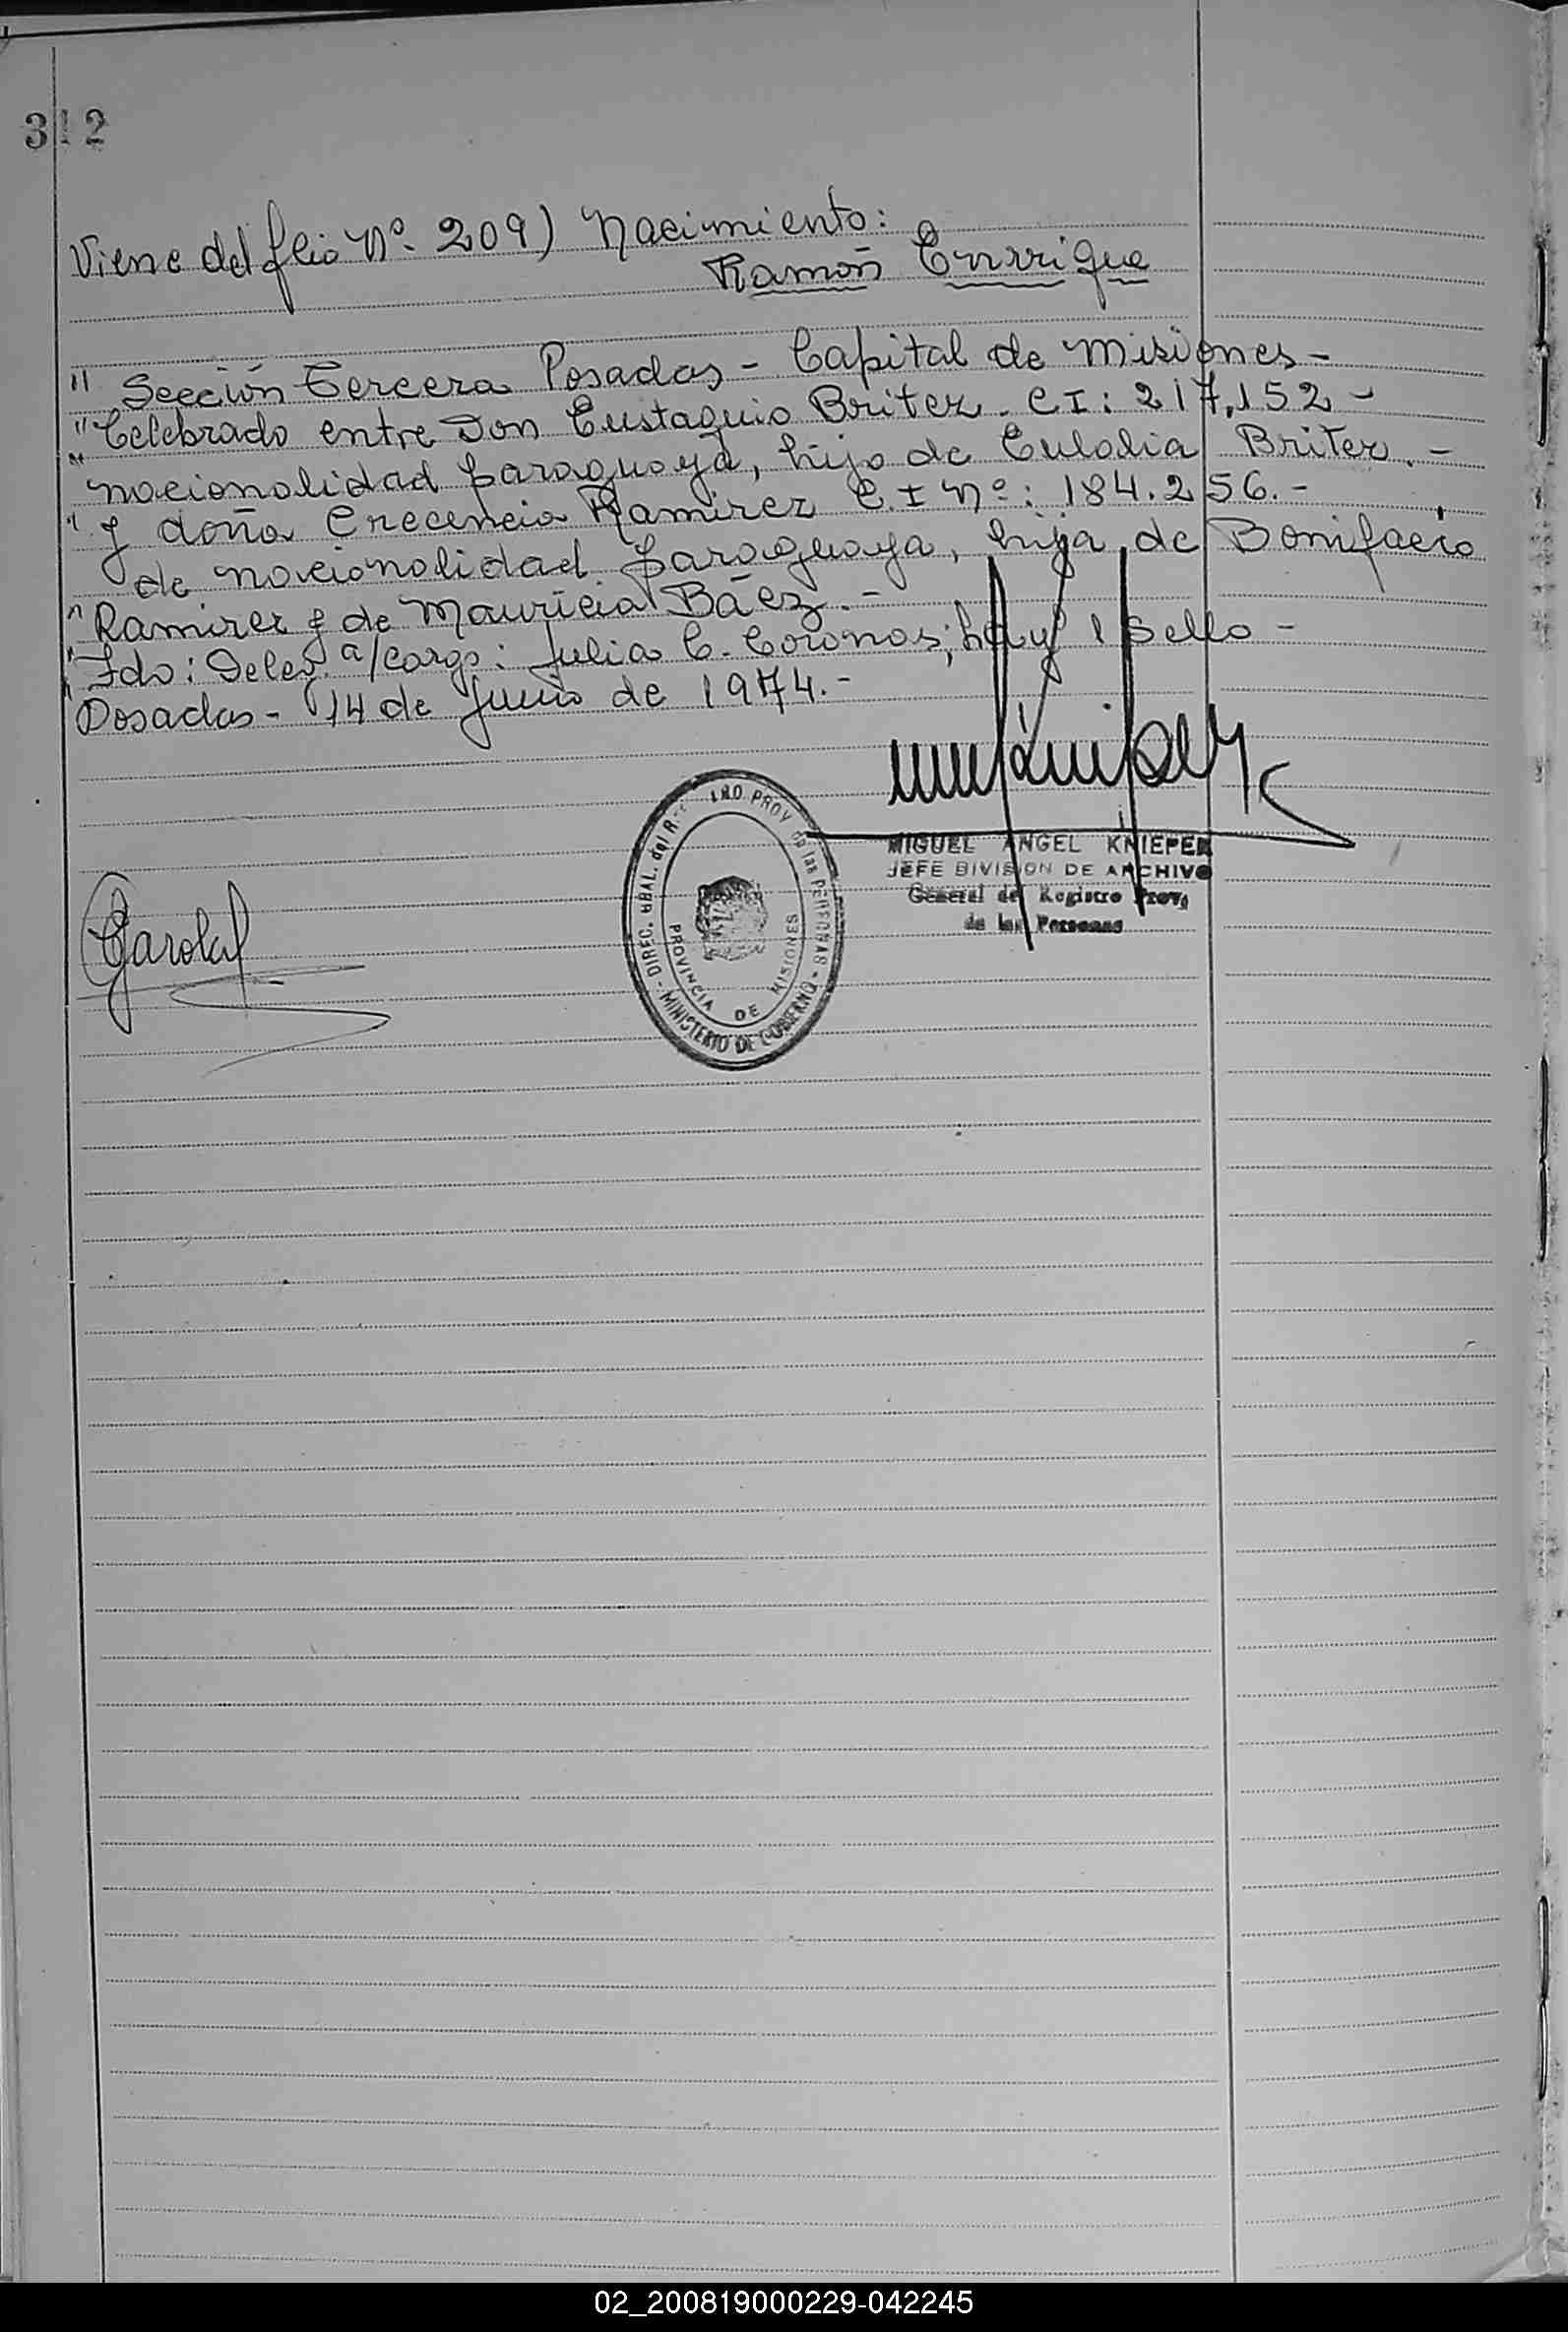 312
Viene del flio Nº. 209) Nacimiento:
Ramón Enrrique
" Sección Tercera Posadas - Capital de Misiones -
" Celebrado entre Don Eustaquio Britez. CI: 217.152 -
" nacionalidad paraguaya, hijo de Eulalia Britez. -
" y doña Crecencia Ramirez C. I Nº: 184.256. -
de nacionalidad paraguaya, hija de Bonifacio
" Ramirez y de Mauricia Báez. -
" Fdo: Deleg. a/cargo: Julia C. Coronas; hay 1 sello -
" Posadas - 14 de Junio de 1974. -
DIREC. GRAL. del R. PROV de las PERSONAS - MINISTERIO DE GOBIERNO -
PROVINCIA DE MISIONES
MIGUEL ANGEL KNIEPER
JEFE DIVISION DE ARCHIVO
General del Registro Prov.
de las Personas
02_200819000229-042245